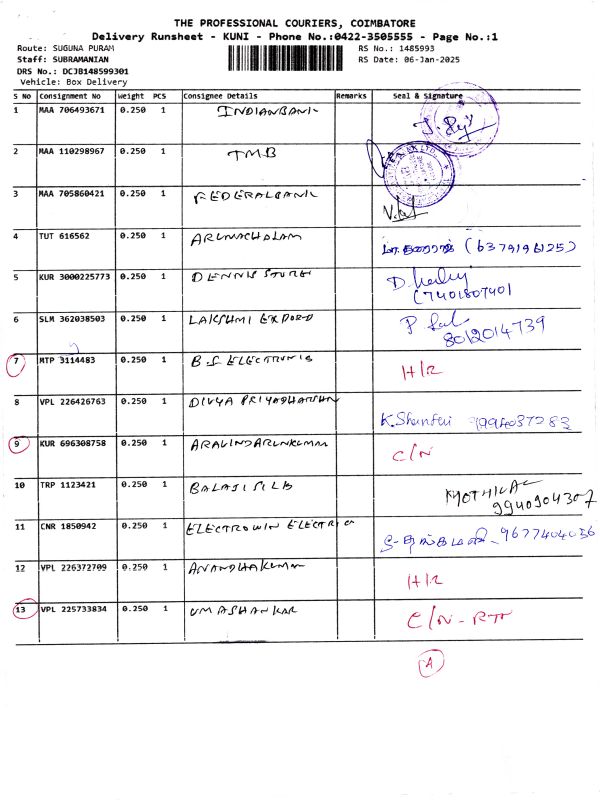 THE PROFESSIONAL COURIERS, COIMBATORE
Delivery Runsheet - KUNI - Phone No.:0422-3505555 - Page No.:1
Route: SUGUNA PURAM RS No.: 1485993
Staff: SUBRAMANIAN RS Date: 06-Jan-2025
DRS No.: DCJB148599301
Vehicle: Box Delivery
S No Consignment No Weight PCS Consignee Details Remarks Seal & Signature
1 MAA 706493671 0.250 1 INDIANBANK
2 MAA 110298967 0.250 1 TMB
3 MAA 705860421 0.250 1 FEDERALBANK
4 TUT 616562 0.250 1 ARUNACHALAM (6379196125)
5 KUR 3000225773 0.250 1 DENNIS STORE D.
(7401807401
6 SLM 362038503 0.250 1 LAKSHMI EXPORD P
8012014739
7 MTP 3114483 0.250 1 B.S ELECTRONIS H/R
8 VPL 226426763 0.250 1 DIVYA PRIYADHARSHN
K. 9994037283
9 KUR 696308758 0.250 1 ARAVINDARUNKUMAR C/N
10 TRP 1123421 0.250 1 BALAJI SILB
9940904307
11 CNR 1850942 0.250 1 ELECTROWIN ELECTRIC
9677404036
12 VPL 226372709 0.250 1 ANANDHAKUMAR H/R
13 VPL 225733834 0.250 1 UMASHANKAR C/N-RTH
A